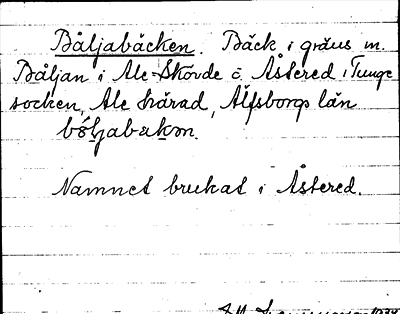 Båljabäcken. Bäck i gräns m.
Båljan i Ale-Skövde o. Åstered i Tunge
socken, Ale härad, Älfsborgs län
Namnet brukat i Åstered.